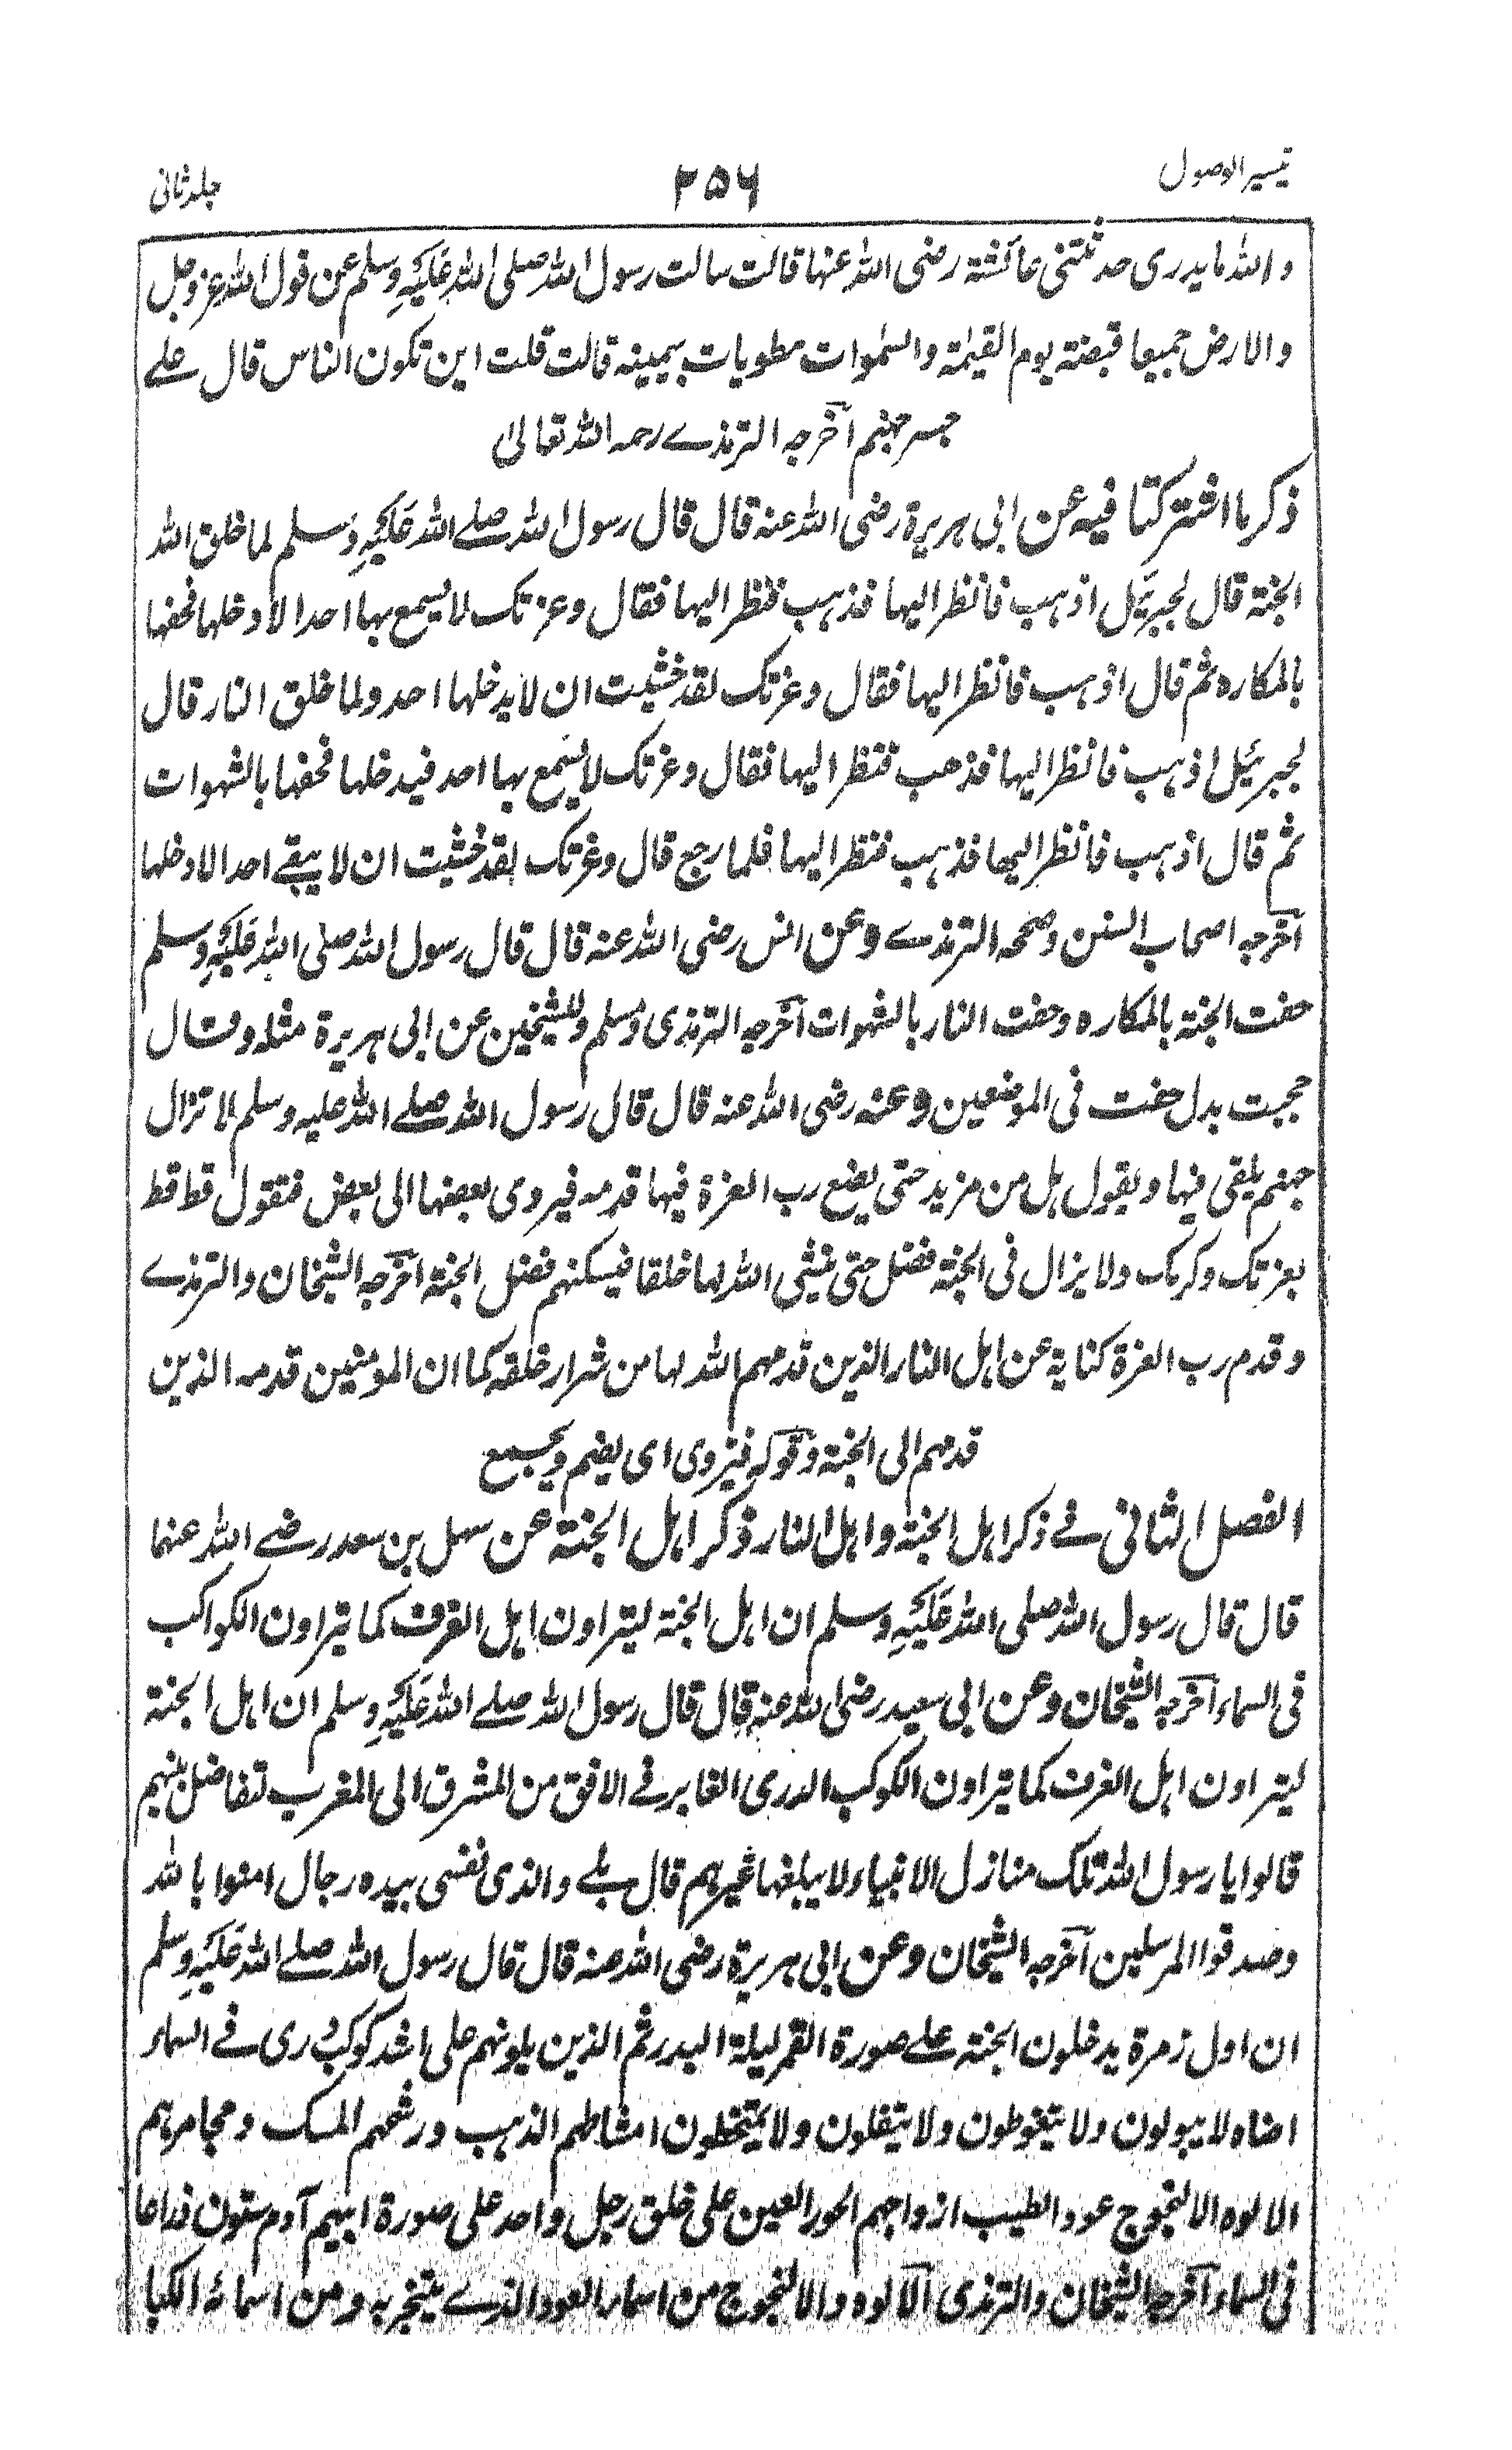 تیسیر الوصول ۲۵۶ جلد ثانی
والله ما یدری حدثتنی عائشة رضی الله عنها قالت سالت رسول الله صلی الله عَلَیْهِ وسلم عن قول الله عز وجل
والارض جمیعا قبضته یوم القیٰمة والسمٰوات مطویات بیمینه قالت قلت این تکون الناس قال علے
جسر جهنم اخرجه الترمذے رحمه الله تعالیٰ
ذکر ما اشترکتا فیه عن ابی هریرة رضی الله عنه قال قال رسول الله صلے الله عَلَیْهِ وَسلم لما خلق الله
الجنة قال لجبرئیل اذهب فانظر الیها فذهب فنظر الیها فقال وعزتک لا یسمع بها احد الا دخلها فحفها
بالمکاره ثم قال اذهب فانظر الیها فقال وعزتک لقد خشیت ان لا یدخلها احد ولما خلق النار قال
لجبرئیل اذهب فانظر الیها فذهب فنظر الیها فقال وعزتک لا یسمع بها احد فیدخلها فحفها بالشهوات
ثم قال اذهب فانظر الیها فذهب فنظر الیها فلما رجع قال وعزتک لقد خشیت ان لا یبقے احد الا دخلها
اخرجه اصحاب السنن وصححه الترمذے وعن انس رضی الله عنه قال قال رسول الله صلی الله عَلَیْهِ وسلم
حفت الجنة بالمکاره وحفت النار بالشهوات اخرجه الترمذی ومسلم وللشیخین عن ابی هریرة مثله وقال
حجبت بدل حفت فی الموضعین وعنه رضی الله عنه قال قال رسول الله صلے الله علیه وسلم لا تزال
جهنم یلقی فیها ویقول هل من مزید حتی یضع رب العزة فیها قدمه فیزوی بعضها الی بعض فتقول قط قط
بعزتک وکرمک ولا یزال فی الجنة فضل حتی ینشی الله لها خلقا فیسکنهم فضل الجنة اخرجه الشیخان والترمذے
وقدم رب العزة کنایة عن اهل النار الذین قدمهم الله لها من شرار خلقه کما ان المومنین قدمه الذین
قدمهم الی الجنة وقوله فیزوی ای یضم ویجمع
الفصل الثانی فے ذکر اهل الجنة واهل النار ذکر اهل الجنة عن سهل بن سعد رضے الله عنهما
قال قال رسول الله صلی الله عَلَیْهِ وسلم ان اهل الجنة لیتراون اهل الغرف کما تتراون الکواکب
فی السماء اخرجه الشیخان وعن ابی سعید رضی الله عنه قال قال رسول الله صلے الله عَلَیْهِ وسلم ان اهل الجنة
لیتراون اهل الغرف کما یتراون الکوکب الدری الغابر فے الافق من المشرق الی المغرب لتفاضل بینهم
قالوا یا رسول الله تلک منازل الانبیاء لا یبلغها غیرهم قال بلے والذی نفسی بیده رجال امنوا بالله
وصدقوا المرسلین اخرجه الشیخان وعن ابی هریرة رضی الله عنه قال قال رسول الله صلے الله عَلَیْهِ وسلم
ان اول زمرة یدخلون الجنة علے صورة القمر لیلة البدر ثم الذین یلونهم علی اشد کوکب دری فے السماء
اضاه لا یبولون ولا یتغوطون ولا یتفلون ولا یمتخطون امشاطهم الذهب ورشحهم المسک ومجامرهم
الالوه الالنجوج عود الطیب ازواجهم الحور العین علی خلق رجل واحد علی صورة ابیهم آدم ستون ذراعا
فی السماء اخرجه الشیخان والترمذی الالوه والالنجوج من اسماء العود الذے یتبخر به ومن اسمائه الکبا